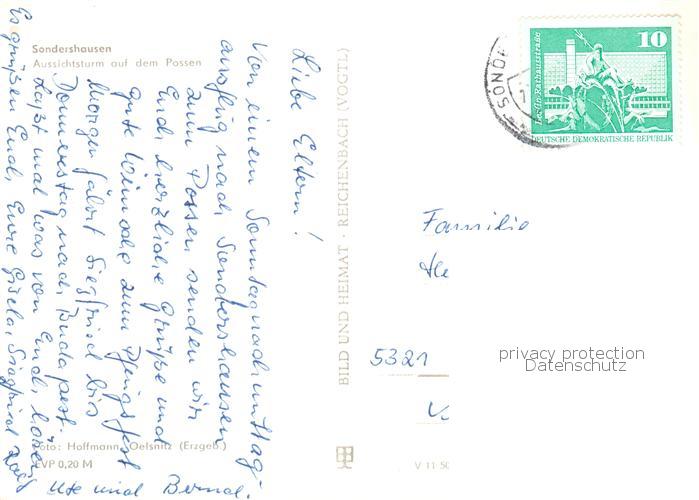 Sondershausen
Aussichtsturm auf dem Possen
Liebe Eltern!
Von einem Sonntagnachmittag-
ausflug nach Sondershausen
zum Possen senden wir
Euch herzliche Grüße und
gute Wünsche zum Pfingstfest
Morgen fährt Siegfried bis
Donnerstag nach Budapest.
Laßt mal was von Euch hören
Es grüßen Euch Eure Gisela, Siegfried
Ute und Bernd.
Foto: Hoffmann, Oelsnitz (Erzgeb.)
EVP 0,20 M
BILD UND HEIMAT · REICHENBACH (VOGTL)
V 11 50
SONDE
10
Berlin, Rathausstraße
DEUTSCHE DEMOKRATISCHE REPUBLIK
Familie
He
5321
privacy protection
Datenschutz